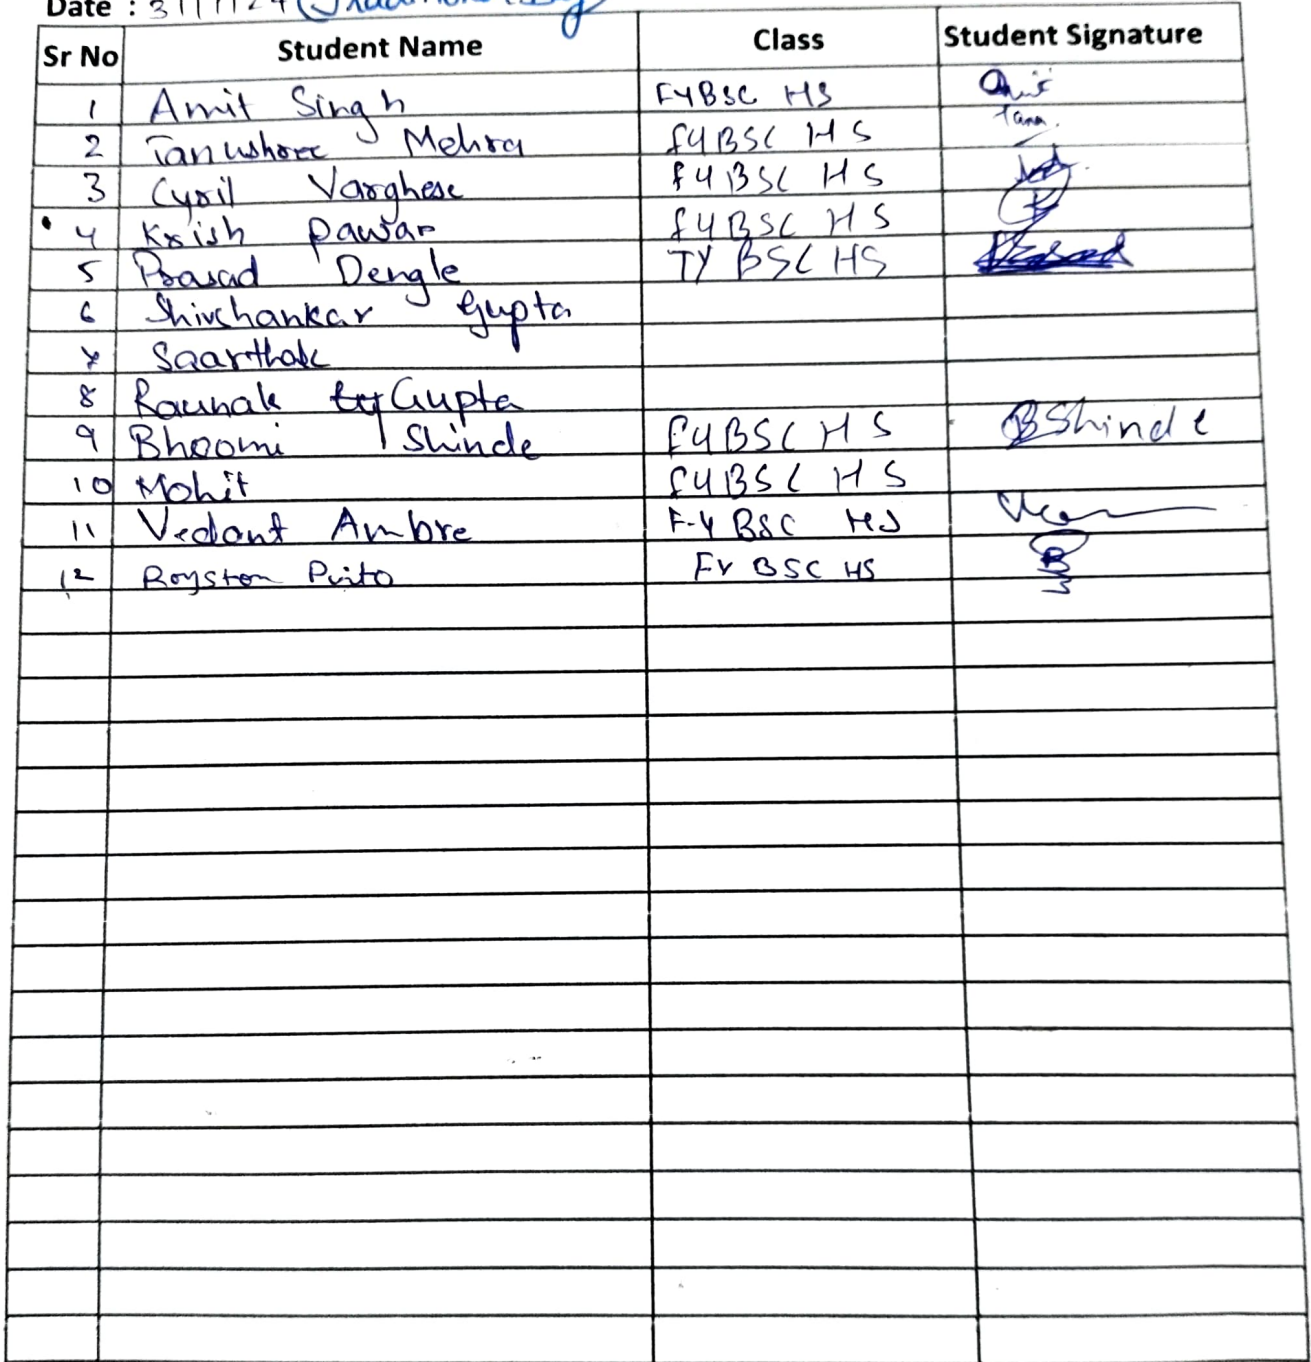 Date : 31/1/24
Sr No Student Name Class Student Signature
1 Amit Singh FYBSC HS
2 Tanushree Mehra FYBSC HS Tann.
3 Cyril Varghese FYBSC HS
4 Krish Pawar FYBSC HS
5 Prasad Dengle TY BSC HS Prasad
6 Shivshankar Gupta
7 Saarthak
8 Raunak Gupta
9 Bhoomi Shinde FYBSC HS BShinde
10 Mohit FYBSC HS
11 Vedant Ambre F-Y BSC HS
12 Royston FY BSC HS